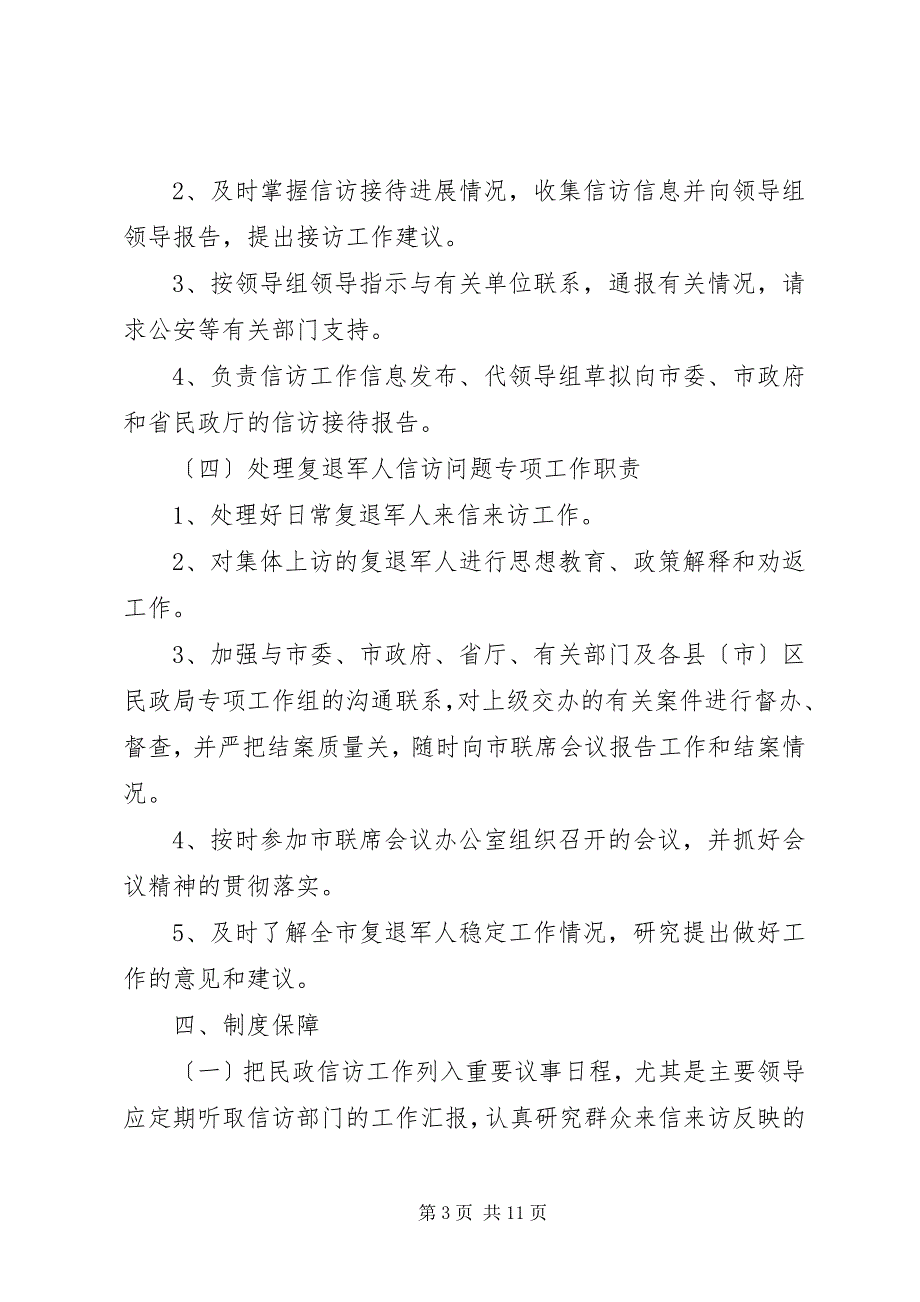 2、及时掌握信访接待进展情况，收集信访信息并向领导组
领导报告，提出接访工作建议。
3、按领导组领导指示与有关单位联系，通报有关情况，请
求公安等有关部门支持。
4、负责信访工作信息发布、代领导组草拟向市委、市政府
和省民政厅的信访接待报告。
〔四〕处理复退军人信访问题专项工作职责
1、处理好日常复退军人来信来访工作。
2、对集体上访的复退军人进行思想教育、政策解释和劝返
工作。
3、加强与市委、市政府、省厅、有关部门及各县〔市〕区
民政局专项工作组的沟通联系，对上级交办的有关案件进行督办、
督查，并严把结案质量关，随时向市联席会议报告工作和结案情
况。
4、按时参加市联席会议办公室组织召开的会议，并抓好会
议精神的贯彻落实。
5、及时了解全市复退军人稳定工作情况，研究提出做好工
作的意见和建议。
四、制度保障
〔一〕把民政信访工作列入重要议事日程，尤其是主要领导
应定期听取信访部门的工作汇报，认真研究群众来信来访反映的
第 3 页 共 11 页